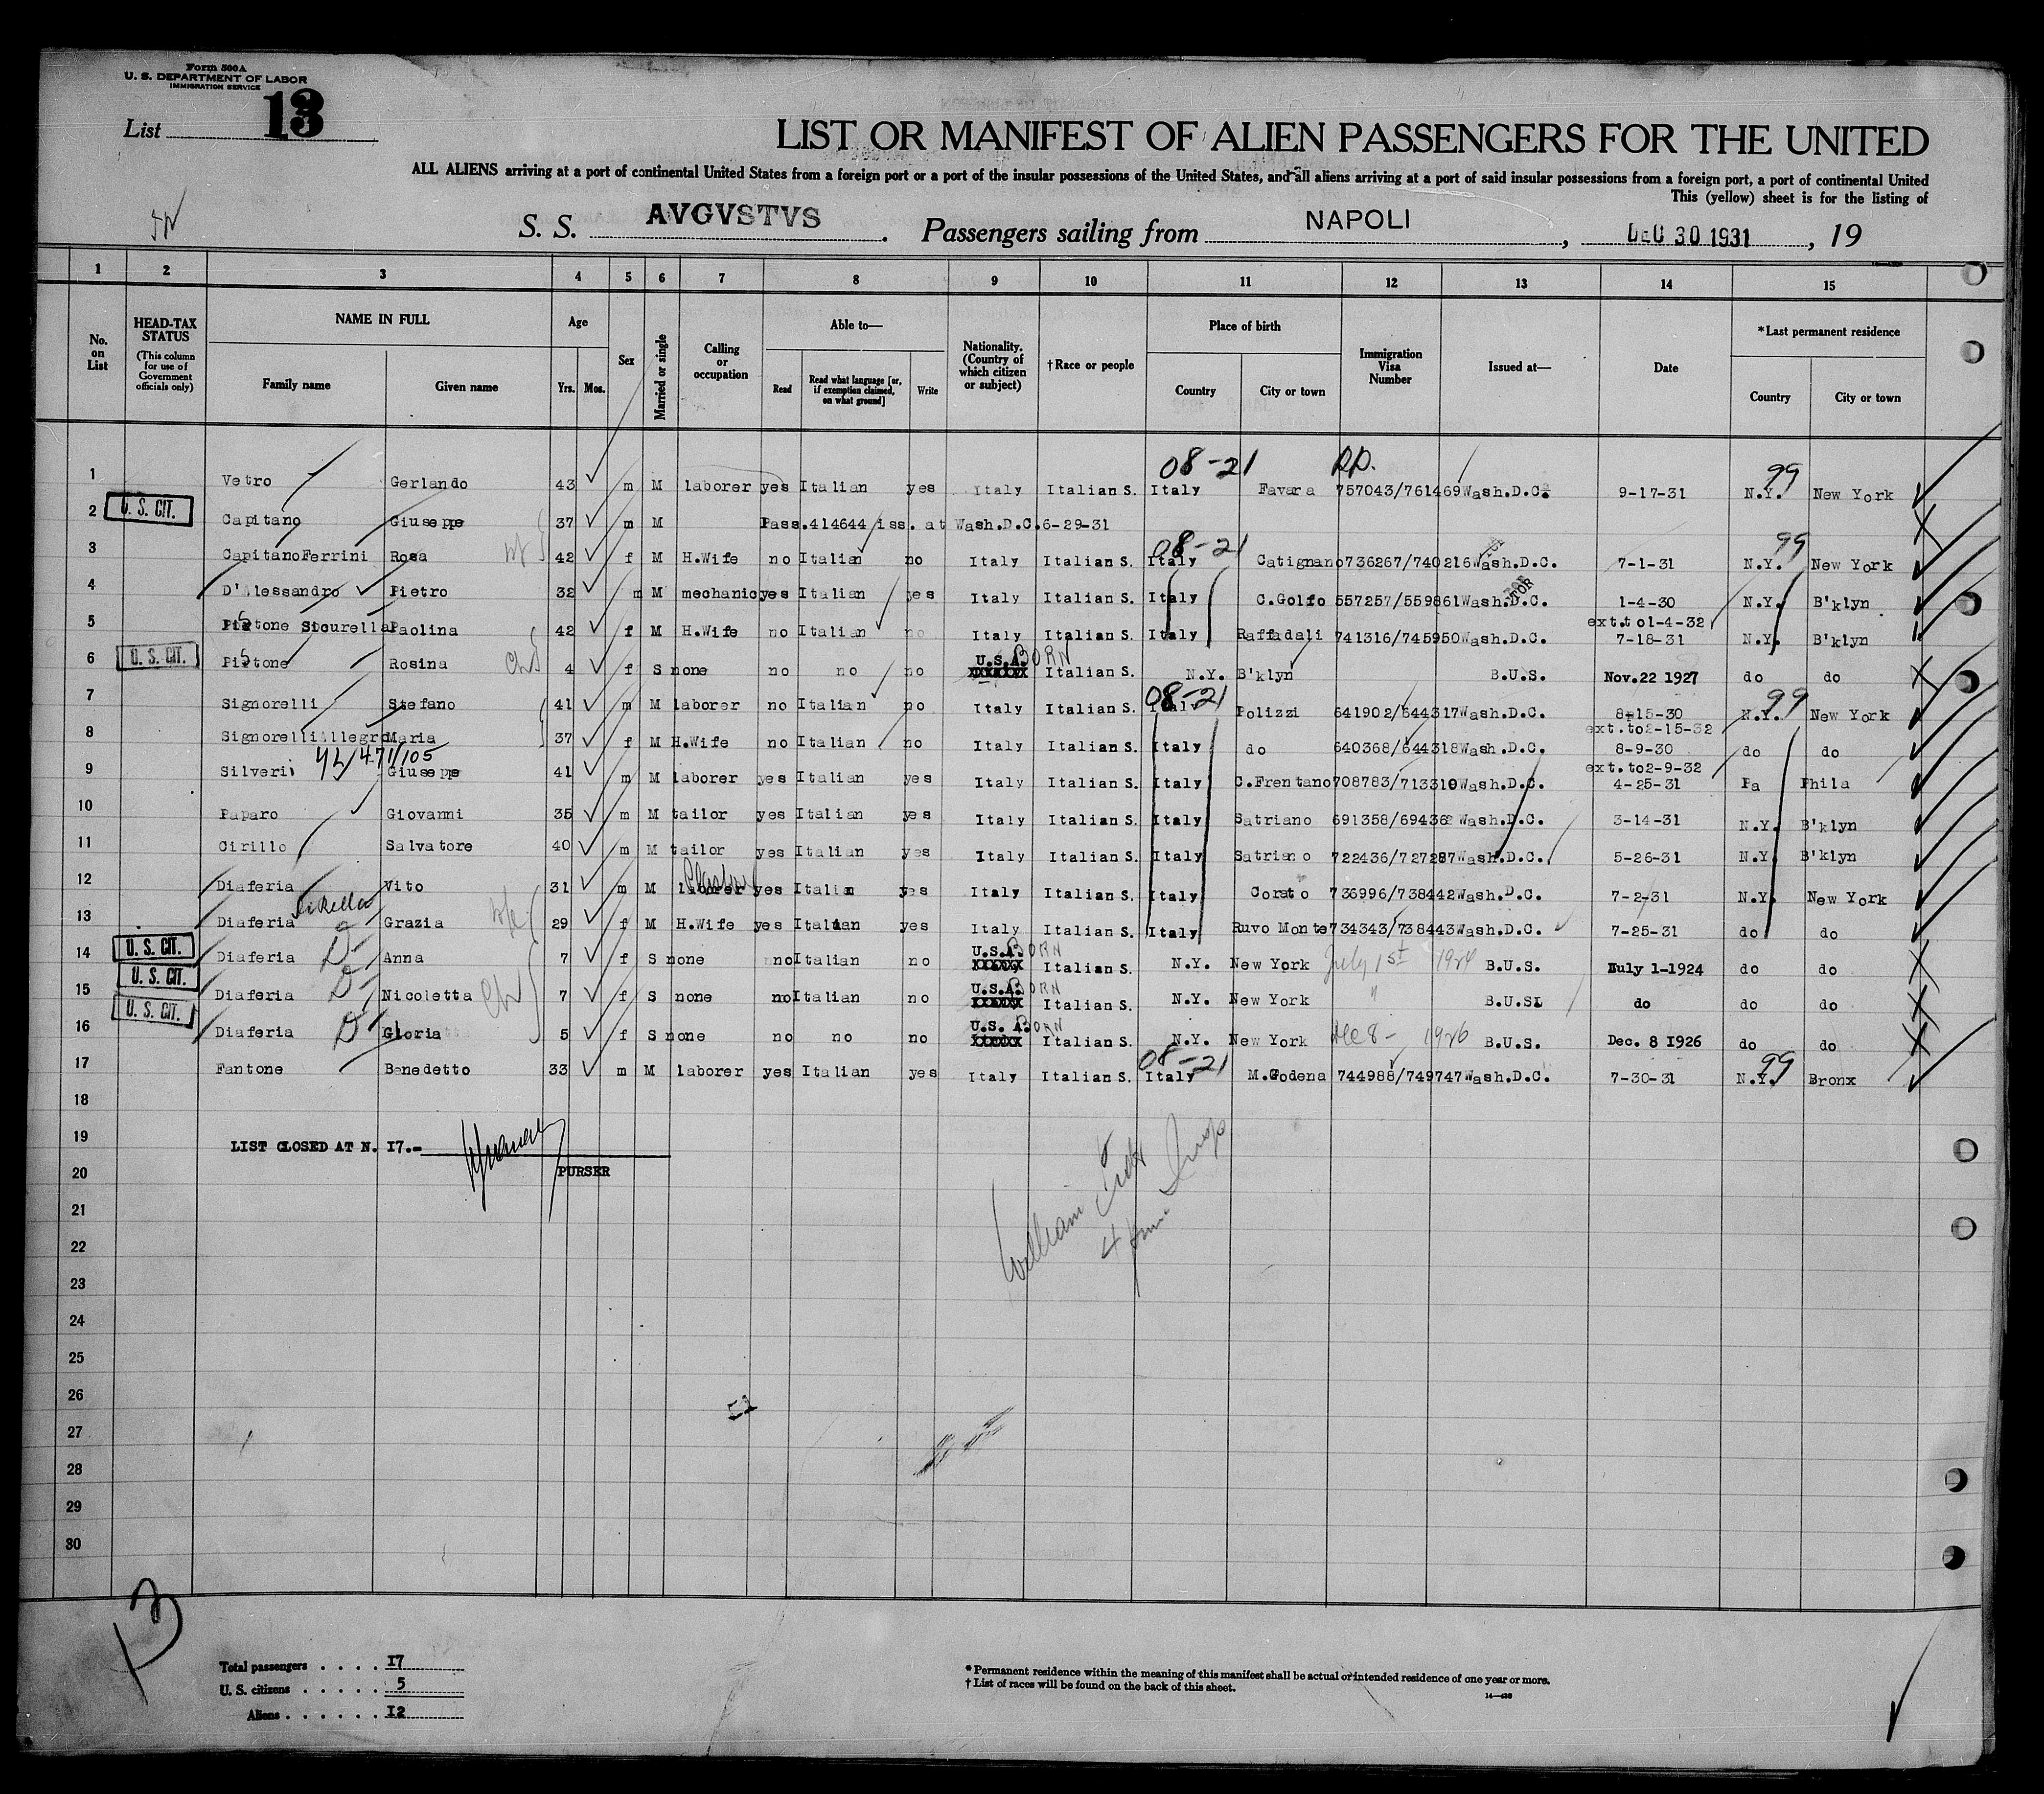 Form 500A
U. S. DEPARTMENT OF LABOR
IMMIGRATION SERVICE
List 13
LIST OR MANIFEST OF ALIEN PASSENGERS FOR THE UNITED
ALL ALIENS arriving at a port of continental United States from a foreign port or a port of the insular possessions of the United States, and all aliens arriving at a port of said insular possessions from a foreign port, a port of continental United
This (yellow) sheet is for the listing of
S. S. AVGVSTVS. Passengers sailing from NAPOLI, DEC 30 1931, 19
1 2 3 4 5 6 7 8 9 10 11 12 13 14 15
No. on List
HEAD-TAX STATUS (This column for use of Government officials only)
NAME IN FULL
Family name Given name
Age
Yrs. Mos.
Sex
Married or single
Calling or occupation
Able to—
Read
Read what language [or, if exemption claimed, on what ground]
Write
Nationality. (Country of which citizen or subject)
†Race or people
Place of birth
Country City or town
Immigration Visa Number
Issued at—
Date
*Last permanent residence
Country City or town
08-21 99
1 Vetro Gerlando 43 m M laborer yes Italian yes Italy Italian S. Italy Favara 757043/761469 Wash.D.C. 9-17-31 N.Y. New York
2 U. S. CIT. Capitano Giuseppe 37 m M Pass.414644 iss. at Wash.D.C.6-29-31
08-21 99
3 Capitano Ferrini Rosa 42 f M H.Wife no Italian no Italy Italian S. Italy Catignano 736267/740216 Wash.D.C. 7-1-31 N.Y. New York
4 D'Alessandro Pietro 32 m M mechanic yes Italian yes Italy Italian S. Italy C.Golfo 557257/559861 Wash.D.C. 1-4-30 N.Y. B'klyn
ext.to1-4-32
5 Pistone Sicurella Paolina 42 f M H.Wife no Italian no Italy Italian S. Italy Raffadali 741316/745950 Wash.D.C. 7-18-31 N.Y. B'klyn
6 U. S. CIT. Pistone Rosina Ch 4 f S none no no no U.S.A. BORN Italian S. N.Y. B'klyn B.U.S. Nov.22 1927 do do
08-21 99
7 Signorelli Stefano 41 m M laborer no Italian no Italy Italian S. Italy Polizzi 641902/644317 Wash.D.C. 8-15-30 N.Y. New York
ext.to2-15-32
8 Signorelli Allegra Maria 37 f M H.Wife no Italian no Italy Italian S. Italy do 640368/644318 Wash.D.C. 8-9-30 do do
ext.to2-9-32
9 Silveri Giuseppe 41 m M laborer yes Italian yes Italy Italian S. Italy C.Frentano 708783/713310 Wash.D.C. 4-25-31 Pa Phila
10 Paparo Giovanni 35 m M tailor yes Italian yes Italy Italian S. Italy Satriano 691358/694362 Wash.D.C. 3-14-31 N.Y. B'klyn
11 Cirillo Salvatore 40 m M tailor yes Italian yes Italy Italian S. Italy Satriano 722436/727287 Wash.D.C. 5-26-31 N.Y. B'klyn
12 Diaferia Vito 31 m M laborer yes Italian yes Italy Italian S. Italy Corato 736996/738442 Wash.D.C. 7-2-31 N.Y. New York
13 Diaferia Grazia 29 f M H.Wife yes Italian yes Italy Italian S. Italy Ruvo Monte 734343/738443 Wash.D.C. 7-25-31 do do
14 U. S. CIT. Diaferia D- Anna 7 f S none no Italian no U.S.A. BORN Italian S. N.Y. New York July 1st 1924 B.U.S. July 1-1924 do do
15 U. S. CIT. Diaferia D- Nicoletta Ch 7 f S none no Italian no U.S.A. BORN Italian S. N.Y. New York " B.U.S. do do do
16 U. S. CIT. Diaferia D- Gloria 5 f S none no no no U.S. A. BORN Italian S. N.Y. New York Dec 8- 1926 B.U.S. Dec. 8 1926 do do
08-21 99
17 Fantone Benedetto 33 m M laborer yes Italian yes Italy Italian S. Italy M.Godena 744988/749747 Wash.D.C. 7-30-31 N.Y. Bronx
18
19 LIST CLOSED AT N. 17.-
20 PURSER
21
22
23
24
25
26
27
28
29
30
13
Total passengers . . . . 17
U. S. citizens . . . . . 5
Aliens . . . . . . 12
* Permanent residence within the meaning of this manifest shall be actual or intended residence of one year or more.
† List of races will be found on the back of this sheet.